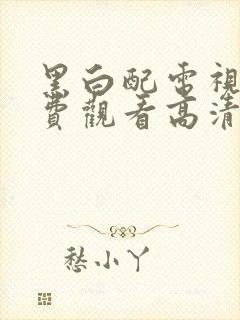 黑白配電視
費觀看高清
愁小丫